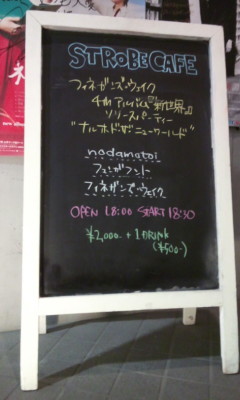 STROBE CAFE
フィネガンズ・ウェイク
4th アルバム『新世界』
リリースパーティー
"ナルホド・ザ・ニューワールド"
nodamatoi
フジガフント
フィネガンズ・ウェイク
OPEN 18:00 START 18:30
¥2,000- + 1 DRINK
(¥500-)